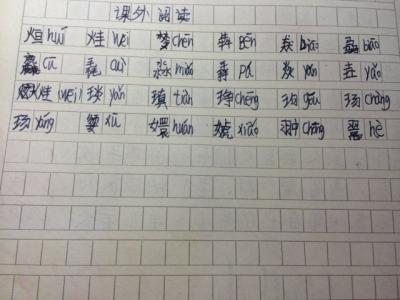 课外阅读
烜 huǐ 烓 wei chēn 犇 Bēn 猋 biāo biāo
麤 cū 毳 cuì 淼 miǎo pá 焱 yàn 垚 yáo
烓(wei) 琰 yǎn 瑱 tiàn 琤 chēng 玽 gǒu 玚 chàng
玚 yáng xū 嬛 huán xiāo 翀 chōng 翯 hè